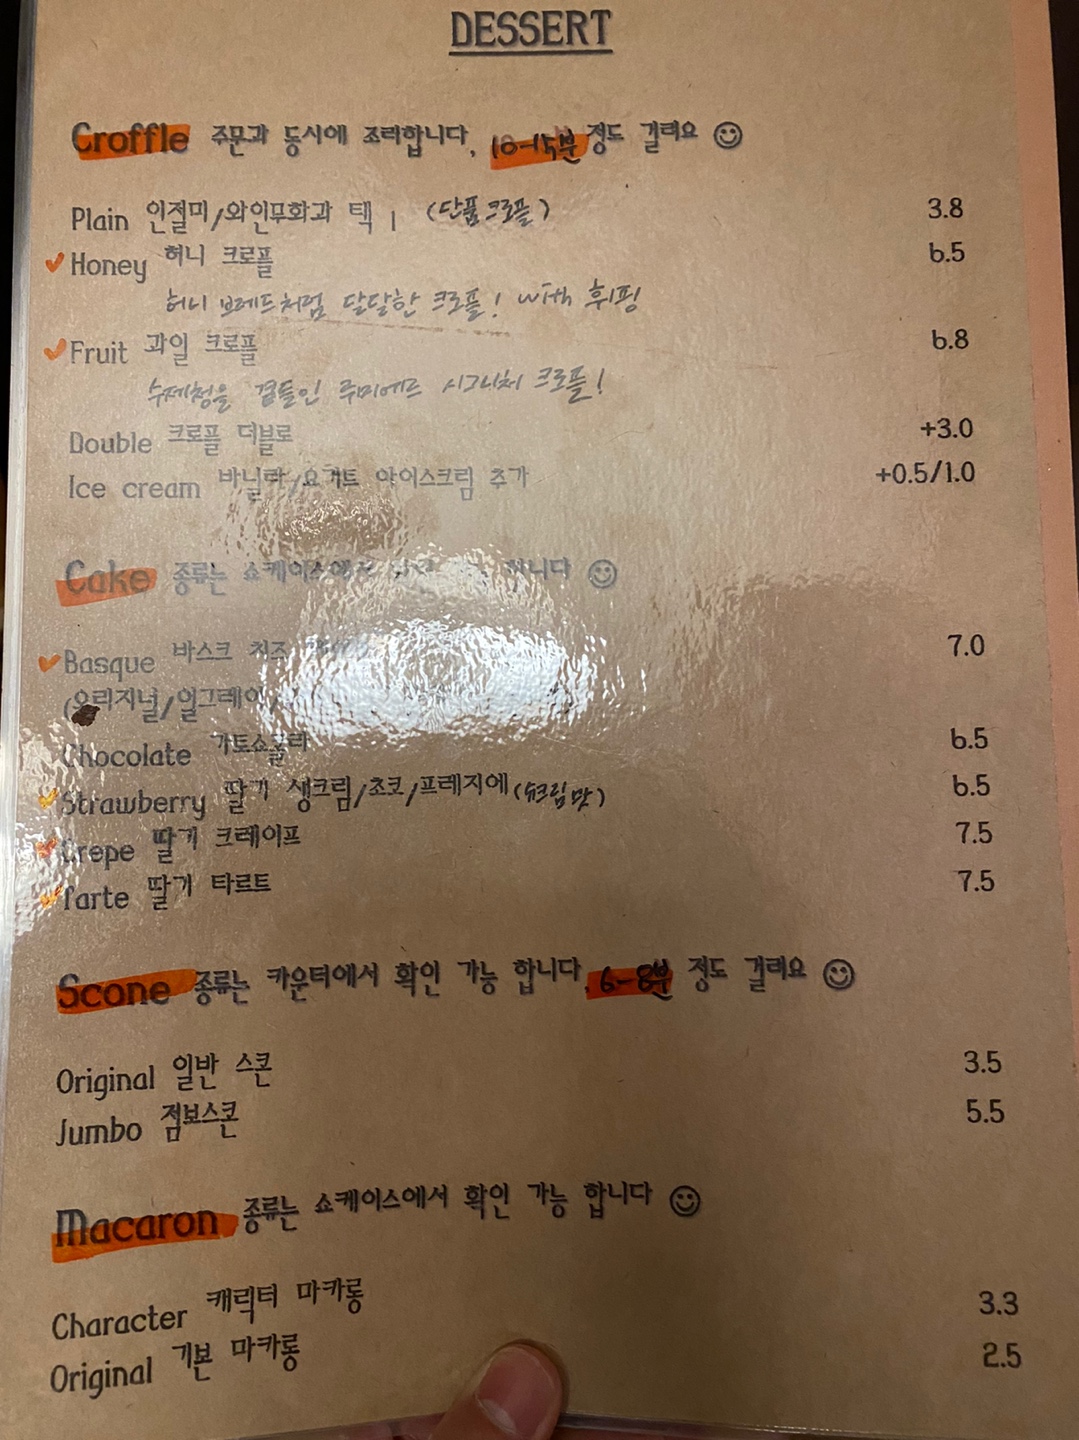 DESSERT
Croffle 주문과 동시에 조리합니다. 10-15분 정도 걸려요
Plain 인절미/와인무화과 택 1 (단품크로플) 3.8
Honey 허니 크로플 6.5
허니 브레드처럼 달달한 크로플! with 휘핑
Fruit 과일 크로플 6.8
수제청을 곁들인 루미에르 시그니처 크로플!
Double 크로플 더블로 +3.0
Ice cream 바닐라/요거트 아이스크림 추가 +0.5/1.0
Cake 종류는 쇼케이스에서 합니다
Basque 바스크 치즈 7.0
(오리지널/얼그레이/
Chocolate 가토쇼콜라 6.5
Strawberry 딸기 생크림/초코/프레지에(슈크림맛) 6.5
Crepe 딸기 크레이프 7.5
Tarte 딸기 타르트 7.5
Scone 종류는 카운터에서 확인 가능 합니다. 6-8분 정도 걸려요
Original 일반 스콘 3.5
Jumbo 점보스콘 5.5
Macaron 종류는 쇼케이스에서 확인 가능 합니다
Character 캐릭터 마카롱 3.3
Original 기본 마카롱 2.5